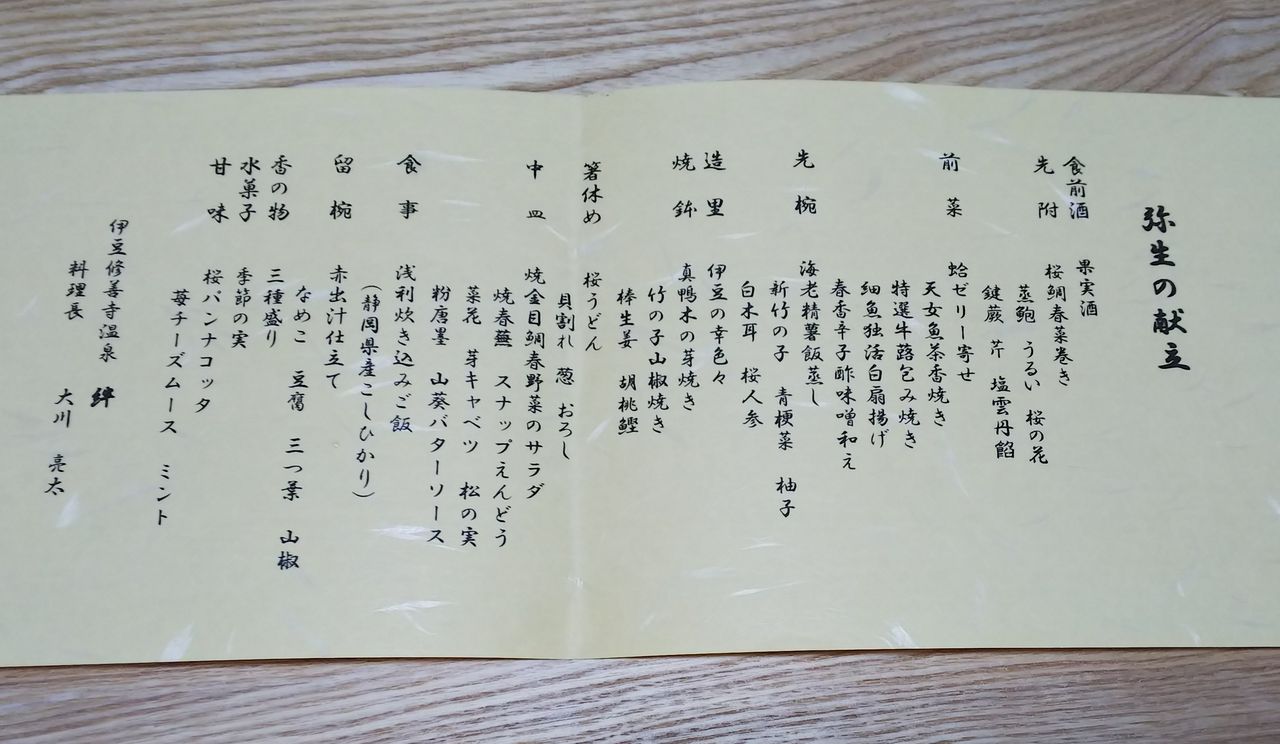 弥生の献立
食前酒 果実酒
先附 桜鯛春菜巻き
蒸鮑 うるい 桜の花
鍵蕨 芹 塩雲丹餡
前菜 蛤ゼリー寄せ
天女魚茶香焼き
特選牛蕗包み焼き
細魚独活白扇揚げ
春香辛子酢味噌和え
先椀 海老精薯飯蒸し
新竹の子 青梗菜 柚子
白木耳 桜人参
造里 伊豆の幸色々
焼鉢 真鴨木の芽焼き
竹の子山椒焼き
棒生姜 胡桃鰹
箸休め 桜うどん
貝割れ 葱 おろし
中皿 焼金目鯛春野菜のサラダ
焼春蕪 スナップえんどう
菜花 芽キャベツ 松の実
粉唐墨 山葵バターソース
食事 浅利炊き込みご飯
（静岡県産こしひかり）
留椀 赤出汁仕立て
なめこ 豆腐 三つ葉 山椒
香の物 三種盛り
水菓子 季節の実
甘味 桜パンナコッタ
苺チーズムース ミント
伊豆修善寺温泉 絆
料理長 大川 亮太